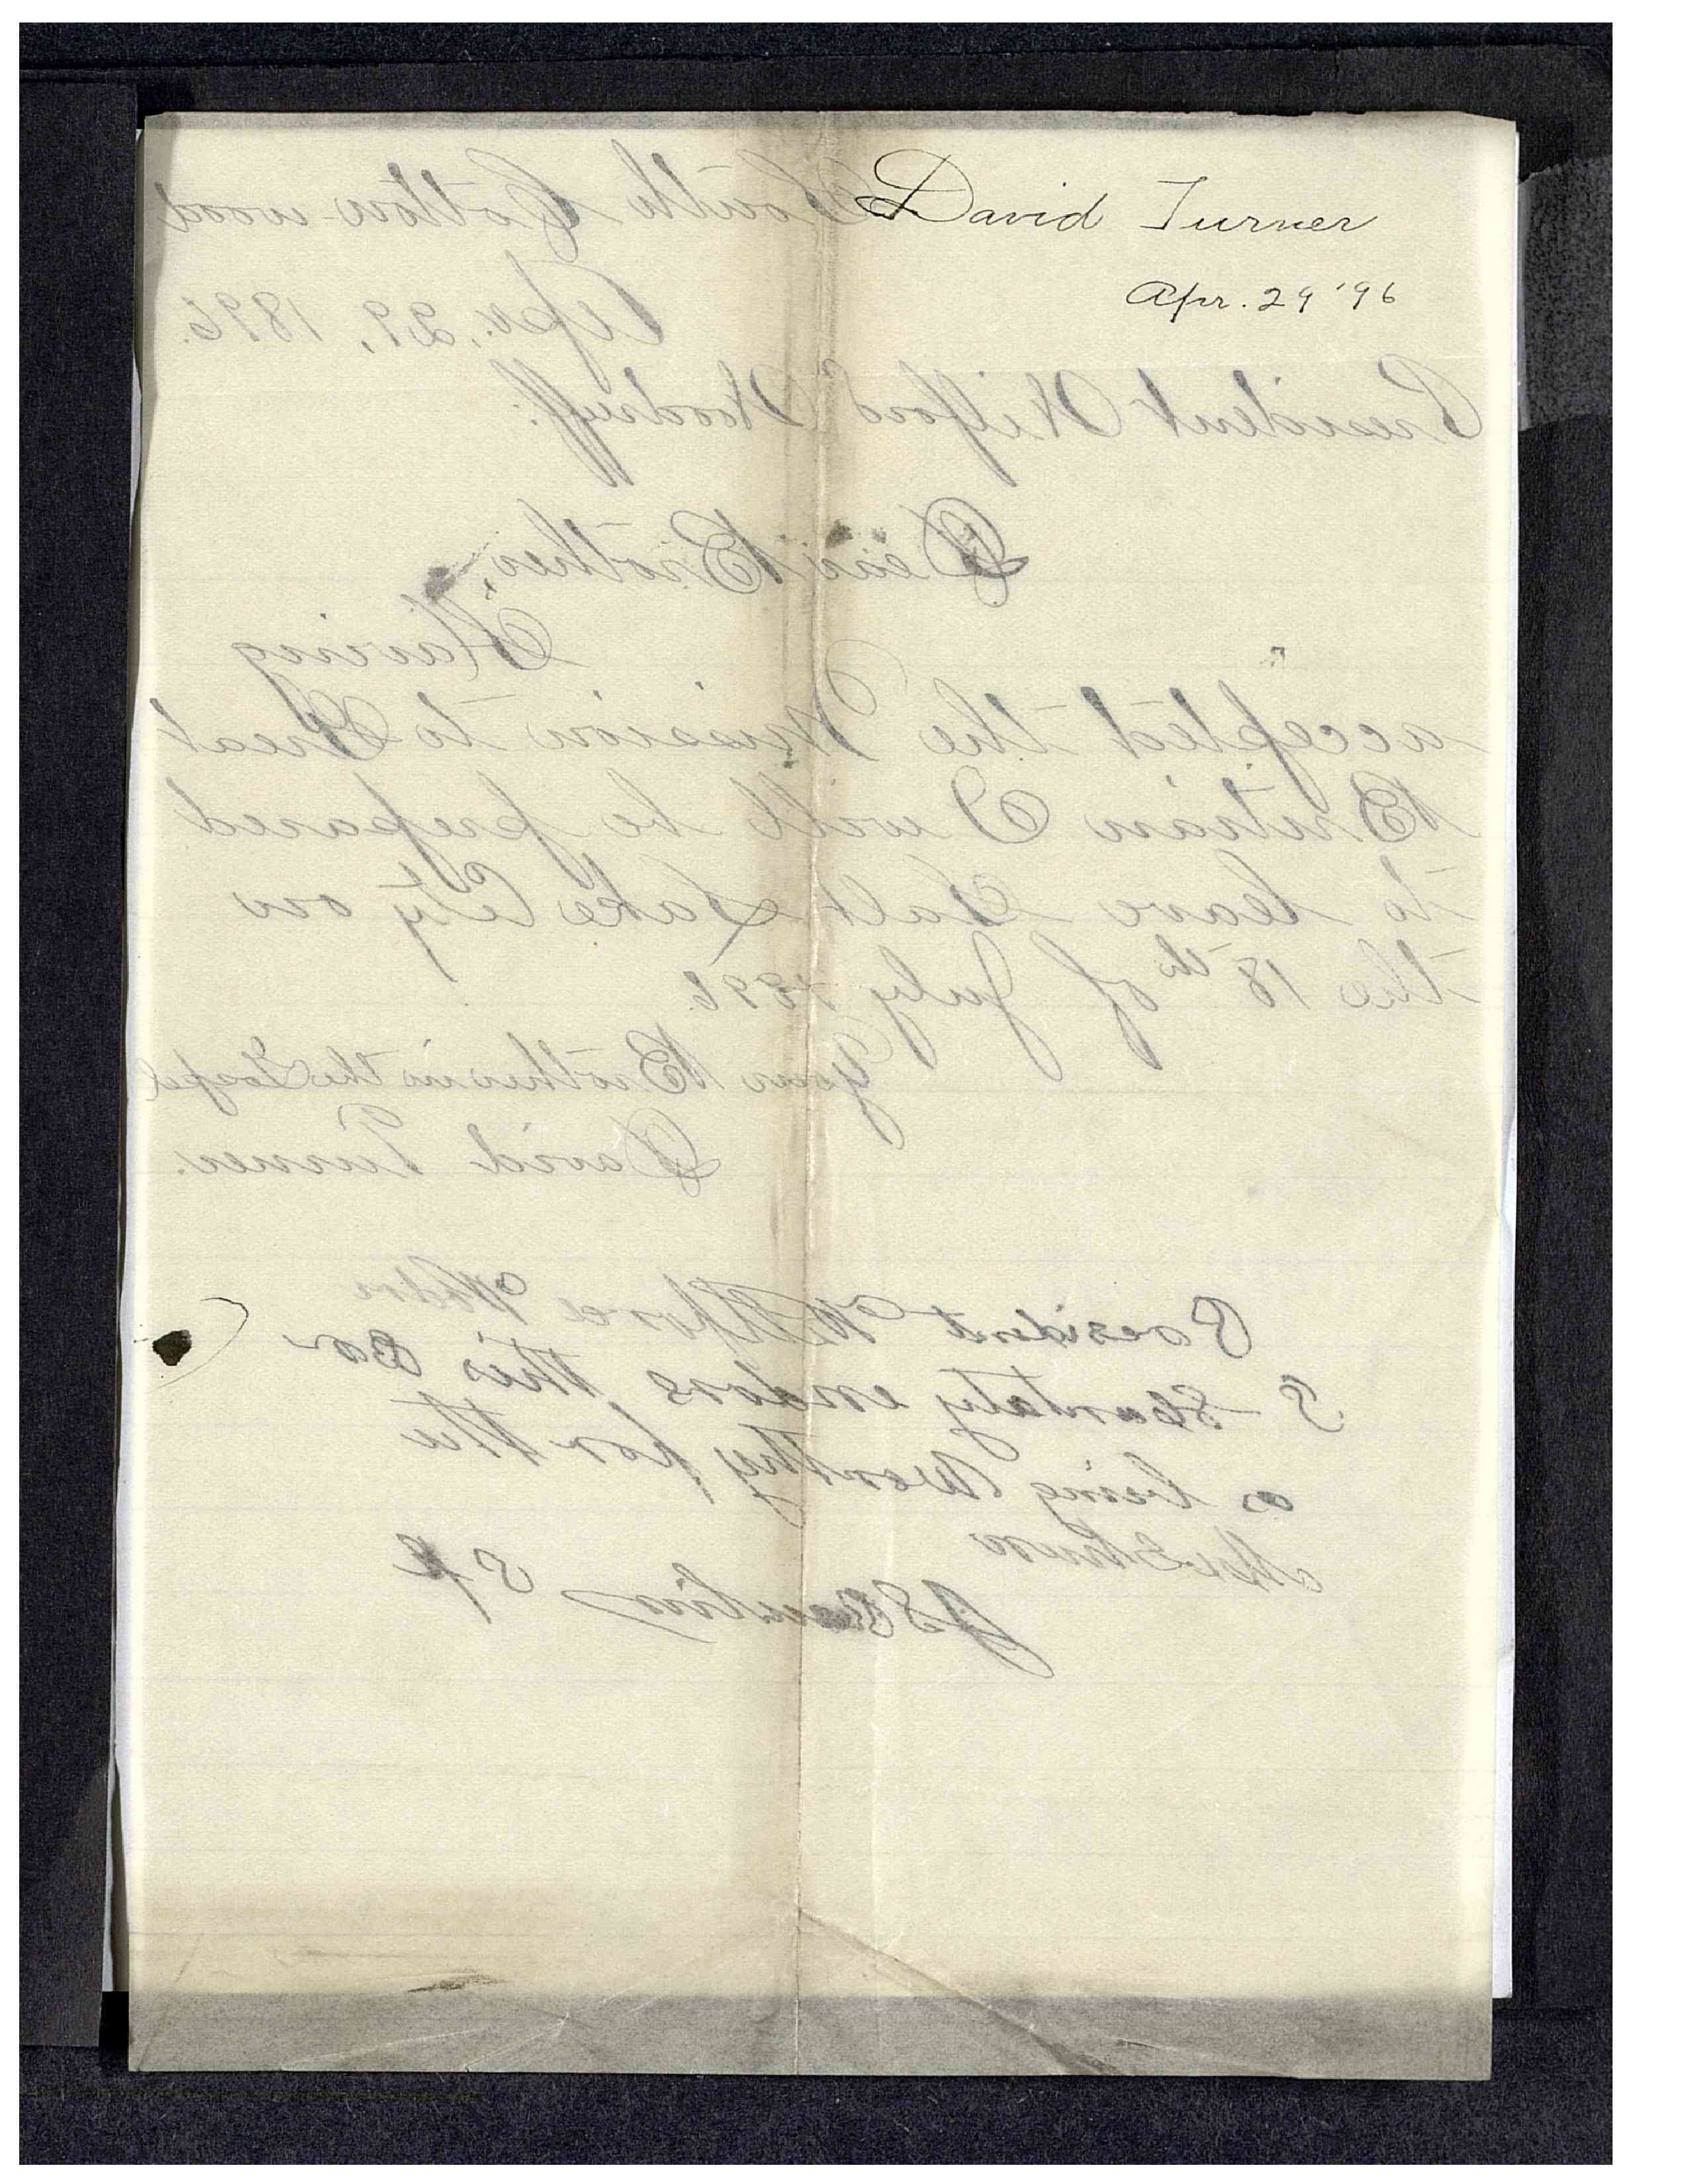 David Turner
Apr. 29 '96
South Cottonwood
Apr. 29, 1896.
President Wilford Woodruff:
Dear Brother,
Having
accepted the Mission to Great
Britain I will be prepared
to leave Salt Lake City on
the 18th of July 1896.
Your Brother in the Gospel
David Turner.
President
I Heartaly endors this Bro
as being Worthy for the